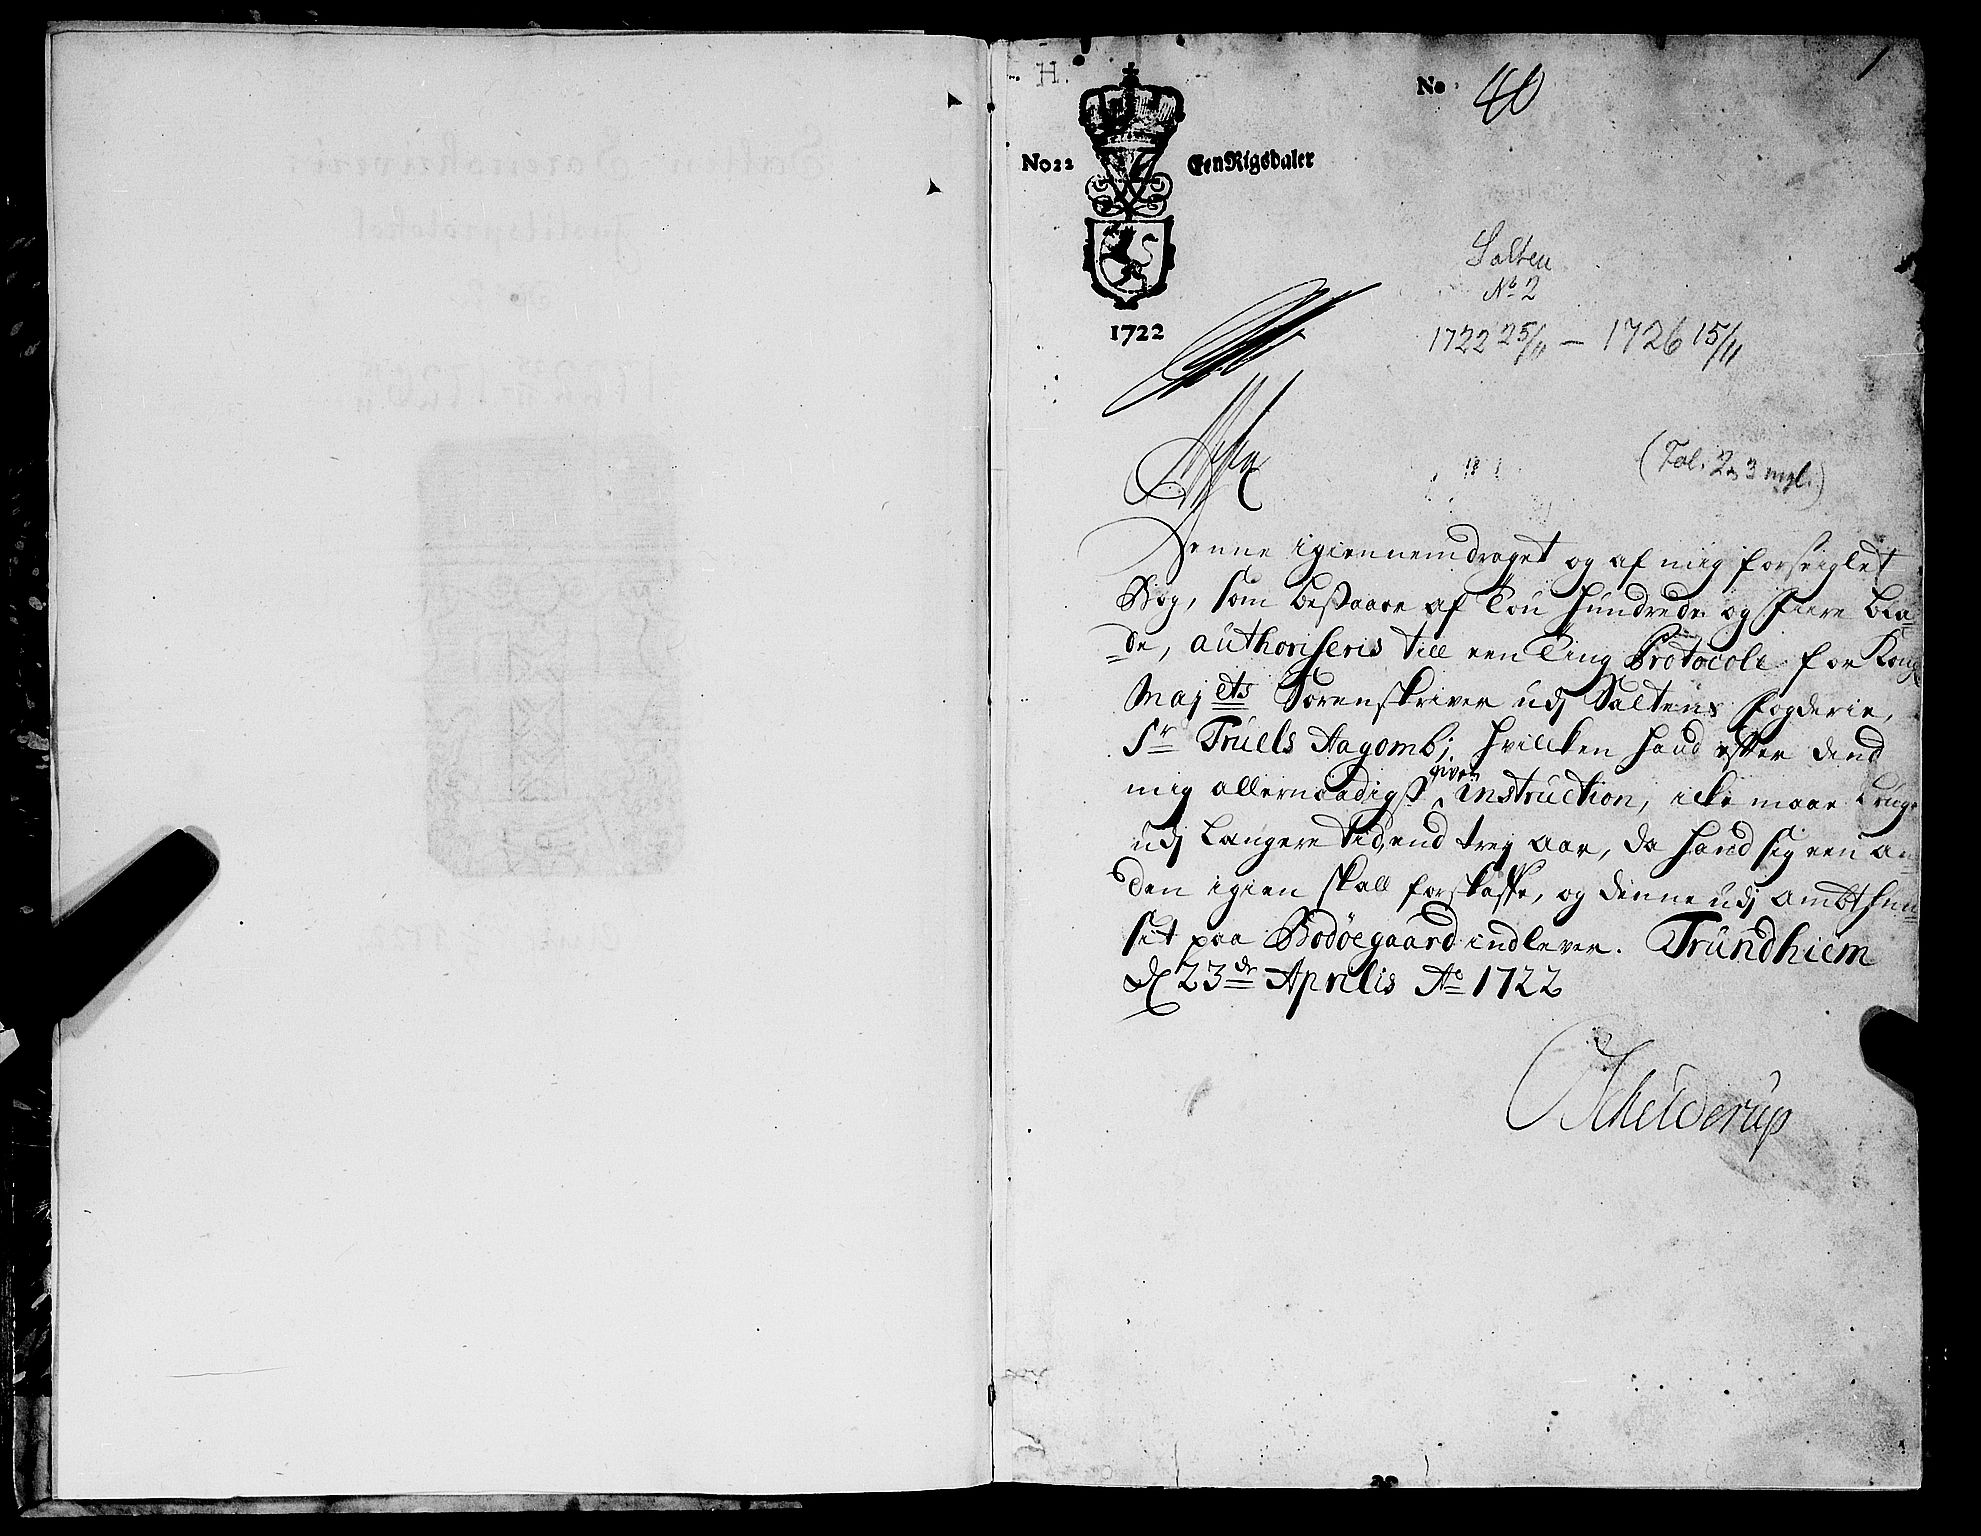 1
H.
No 40
No 22 Een Rigsdaler
1722
Salten
No 2
1722 25/11 – 1726 15/11
(Fol. 2 & 3 mgl.)
Denne igiennemdraget og af mig forseiglet
Bog, som bestaare af Tou hundrede og fiere bla-
de, authoriseris till een Ting Protocoll for Kong
Maj ets Sorenskriver udj Saltens fogderie,
Sr Truels Aagomb; hvilcken hand effter dend
mig allernaadigst given instruction, icke maae bruge
udj langere tid, end trej aar, da hand sig een an-
den igien skall forskaffe, og denne udj ambthuu-
set paa Bodøegaard indlever. Trundhiem
d 23de Aprilis Ao 1722
Schelderup